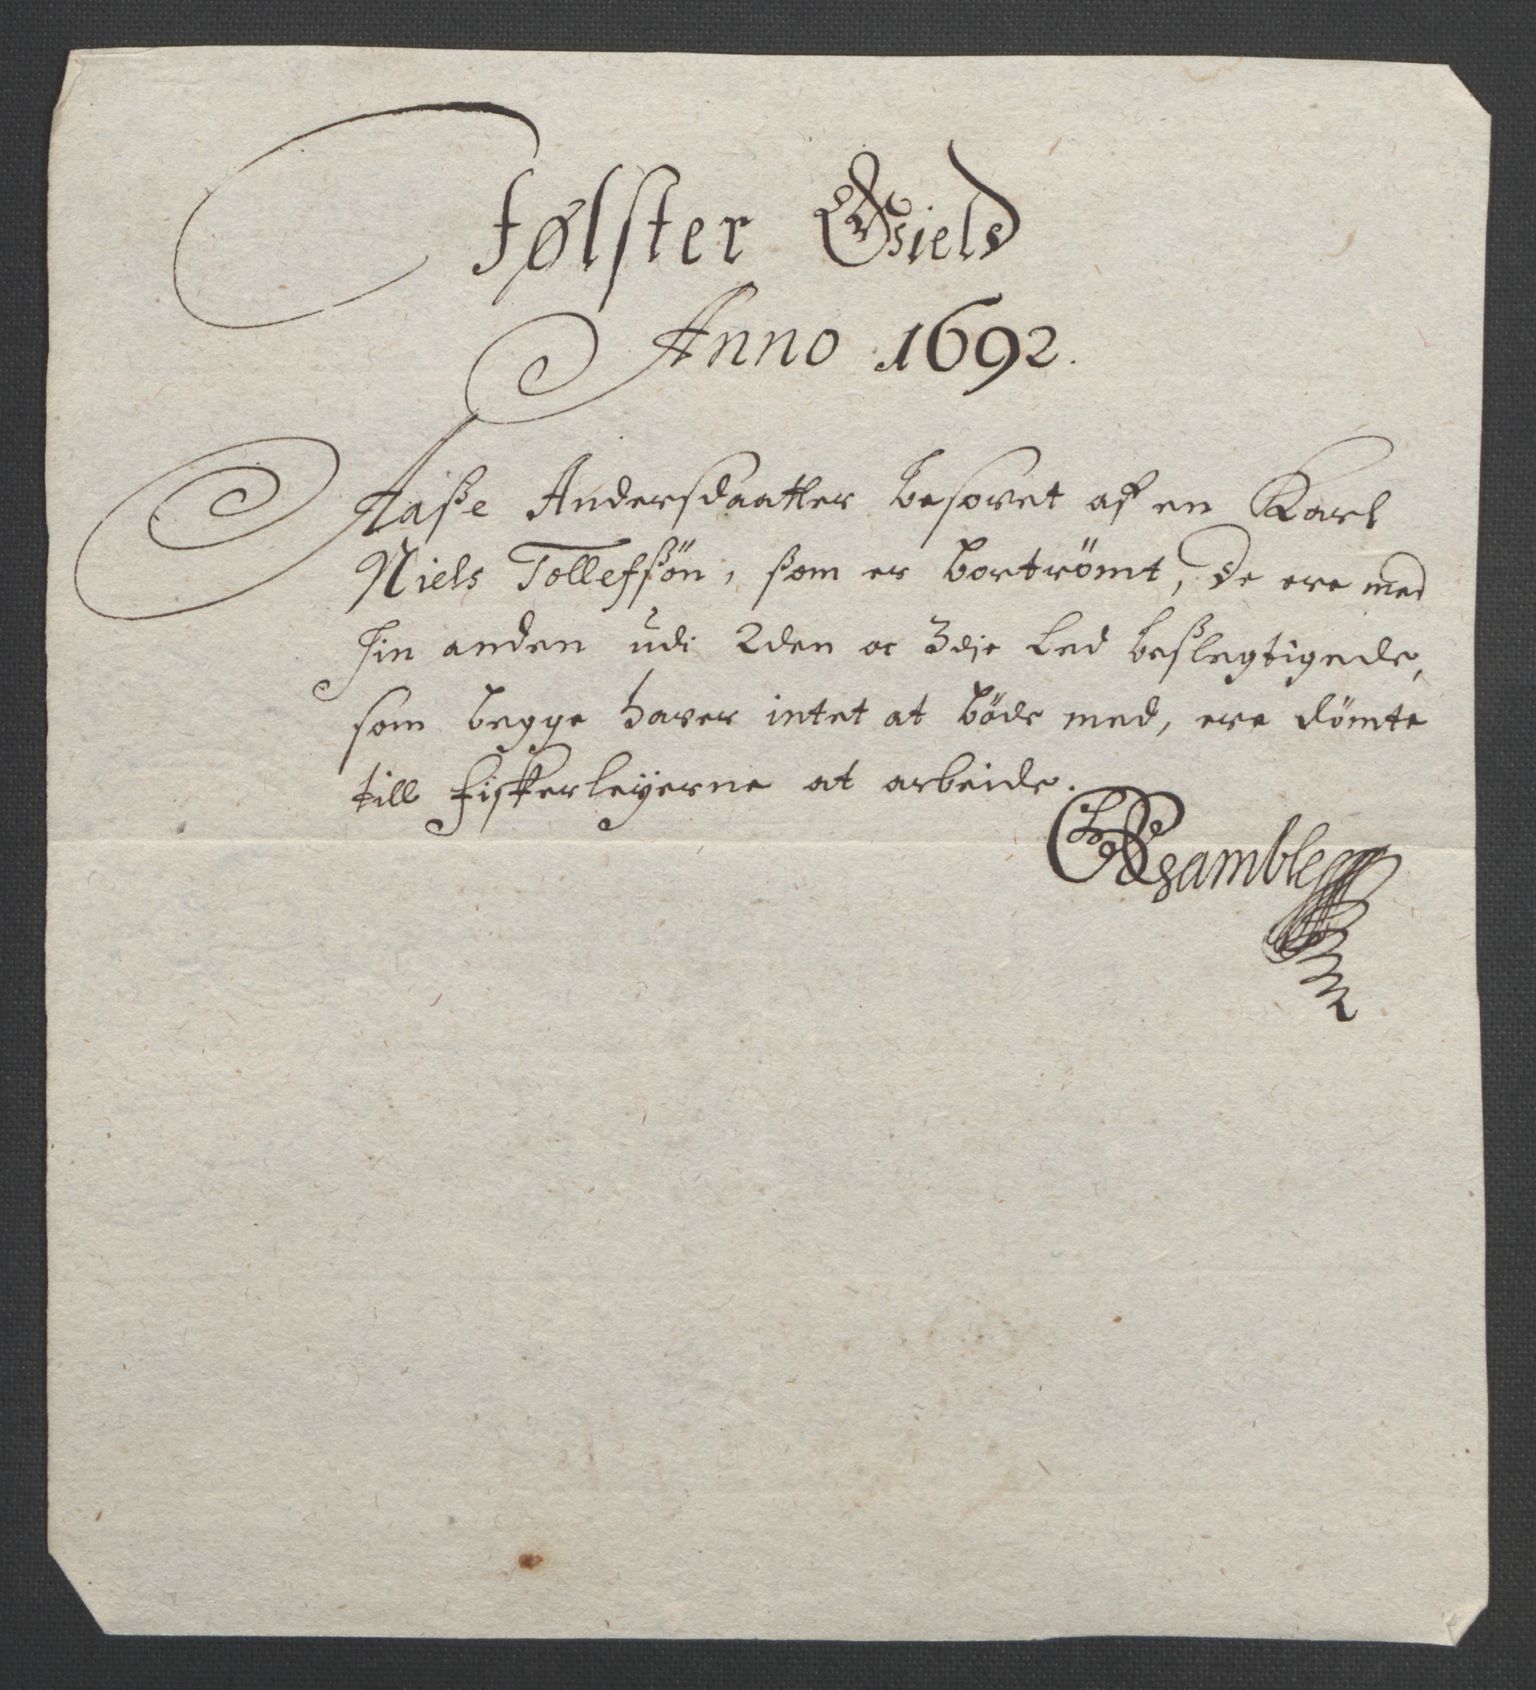 Jølster Gield
Anno 1692.
Aaße Andersdaatter besovet af en Karl
Niels Tollefßön, ßom er bortrömt, de ere med
hin anden udi 2den oc 3die Led beßlegtigede,
som begge haver intet at böde med, ere dömte
till Fiskerleyerne at arbeide.